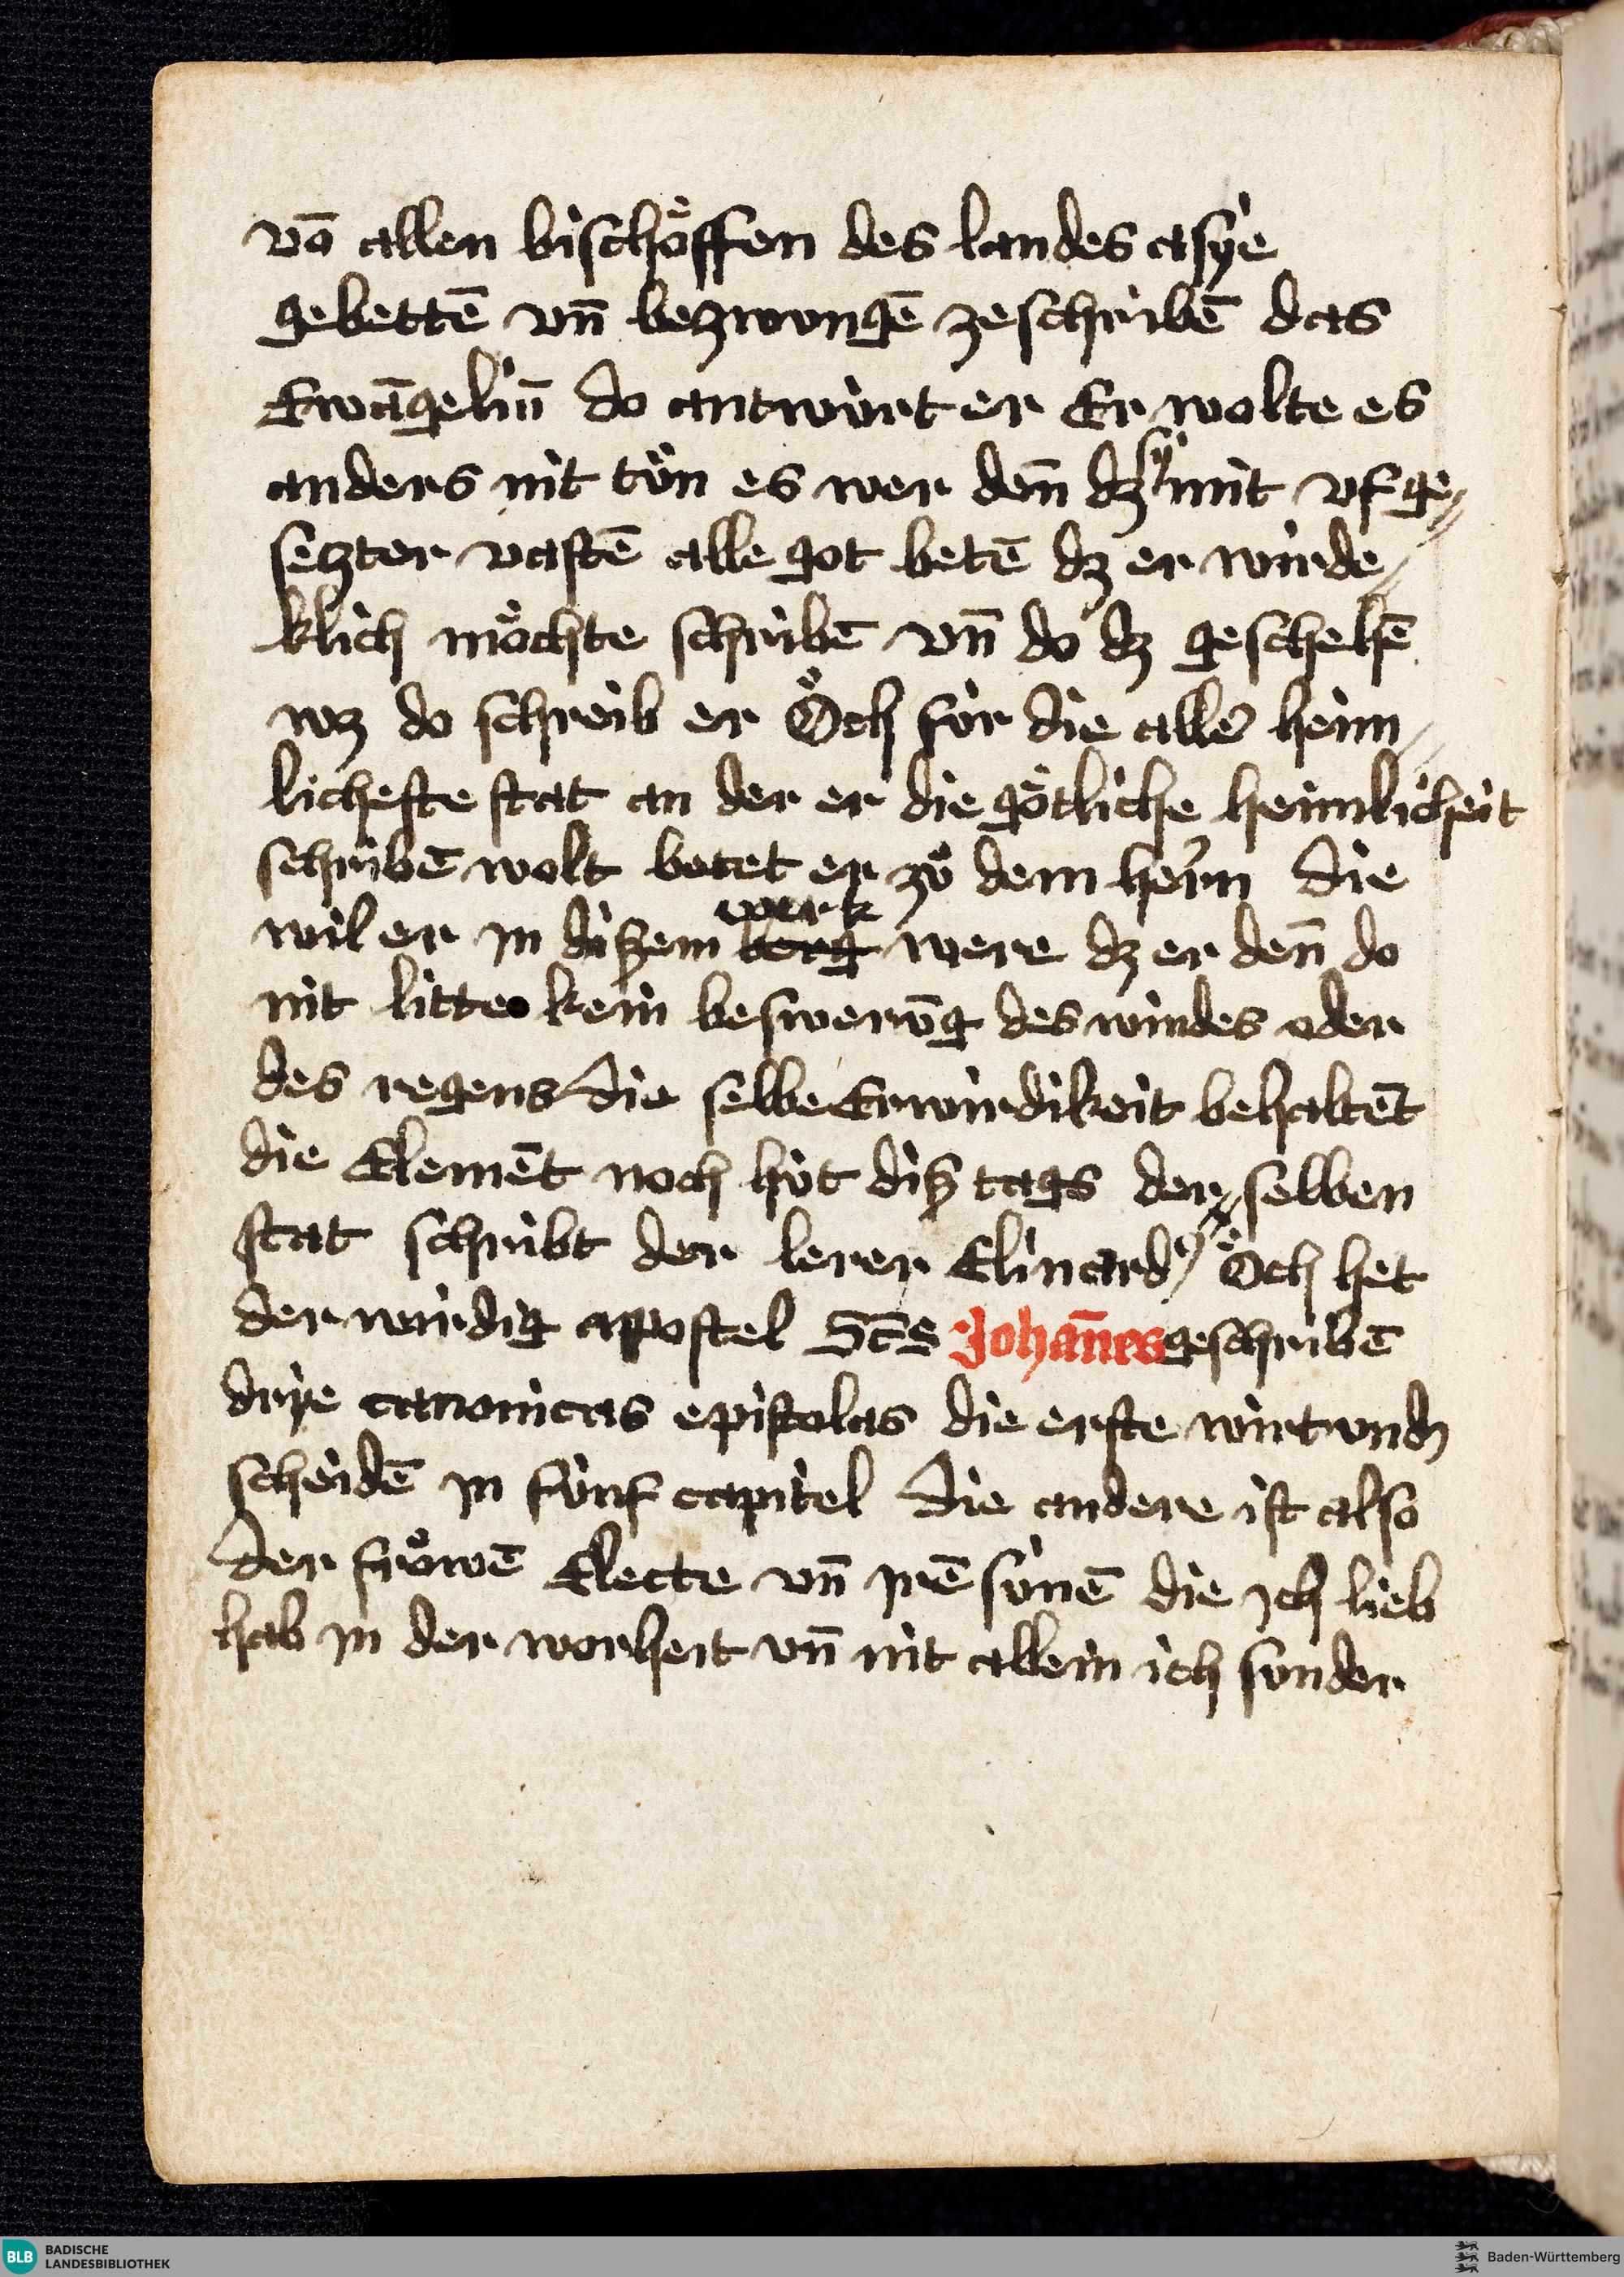 vō allen bischoͤffen des landes asye
gebettē vn̄ bezwungē zeschribē das
Ewāgeliū do antwurt er Er wolte es
anders nit tuͦn es wer den̄ dz sÿ mit vf ge⸗
setzter vastē alle got betē dz er wirde⸗
klich moͤchte schribē vn̄ do dz geschehē
wz do schreib er Oͤch fúr die aller heim⸗
licheste stat an der er die goͤtliche heimlicheit
schribē wolt betet er zuͦ dem herrn die
wil er in disem werk were dz er den̄ do
nit litte kein beswerūg des windes oder
des regens die selbe Erwirdikeit behaltēt
die Elemēt noch hút disz tags der selben
stat schribt der lerer Elinardꝰ Oͤch het
der wirdig appostel Sc̄s Johan̄es geschribē
drye canonicas epistolas die erste wirt vnd⁊
scheidē in fúnf capitel die andere ist also
der froͤwē Electe vn̄ irē súnē die ich lieb
hab in der worheit vn̄ nit allein ich sunder
BLB BADISCHE
LANDESBIBLIOTHEK
Baden-Württemberg